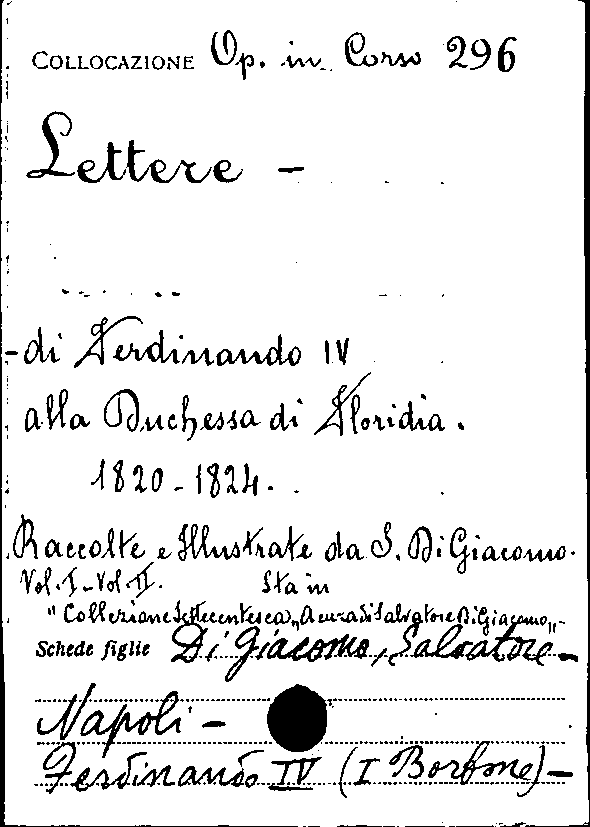 COLLOCAZIONE Op. in Corso 296
Lettere -
- di Ferdinando IV
alla Duchessa di Floridia.
1820 - 1824.
Raccolte e Illustrate da S. Di Giacomo.
Vol. I - Vol. II. Sta in
"Collezione Settecentesca „ A cura di Salvatore Di Giacomo „ -
Schede figlie Di Giacomo, Salvatore -
Napoli -
Ferdinando IV (I Borbone) -